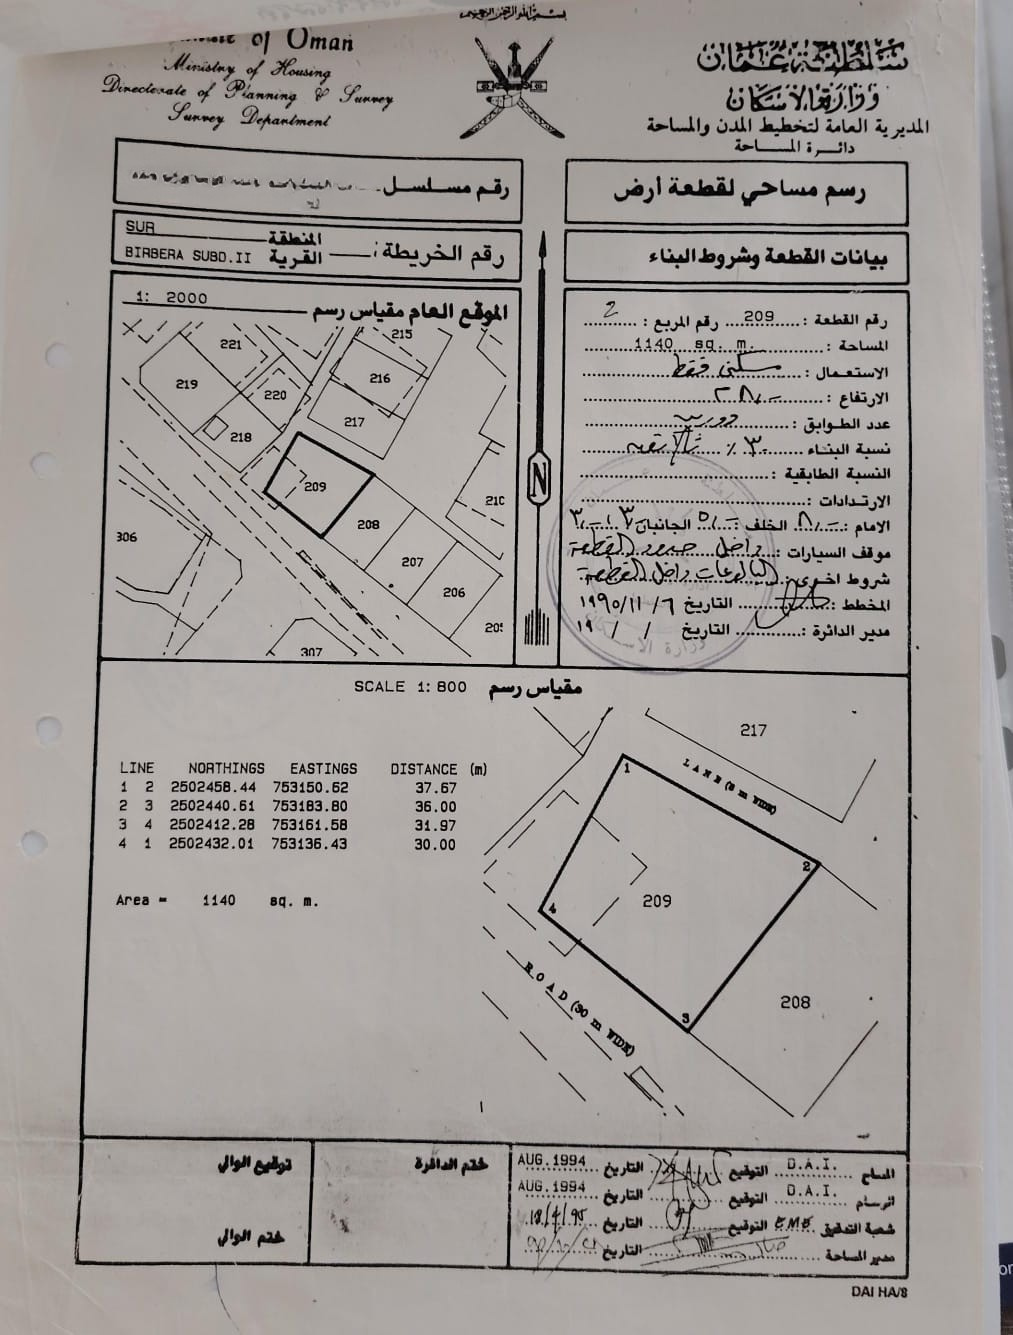 بسم الله الرحمن الرحيم
of Oman
Ministry of Housing
Directorate of Planning & Survey
Survey Department
سلطنة عمان
وزارة الاسكان
المديرية العامة لتخطيط المدن والمساحة
دائرة المساحة
رقم مسلسل
رسم مساحي لقطعة ارض
SUR المنطقة
BIRBERA SUBD.II القرية
رقم الخريطة :
بيانات القطعة وشروط البناء
1: 2000 الموقع العام مقياس رسم
215
221
216
219
220
217
218
209
210
208
306
207
206
205
307
N
رقم القطعة : 209 رقم المربع : 2
المساحة : 1140 sq. m.
الاستعمال : سكني فقط
الارتفاع :
عدد الطوابق : دورين
نسبة البناء ٣٠ ٪
النسبة الطابقية :
الارتدادات :
الامام : الخلف : الجانبان
موقف السيارات : داخل حدود القطعة
شروط اخرى : البالوعات داخل القطعة
المخطط : التاريخ ٦ / ١١ / ١٩٩٥
مدير الدائرة : التاريخ / / ١٩
SCALE 1: 800 مقياس رسم
LINE NORTHINGS EASTINGS DISTANCE (m)
1 2 2502458.44 753150.62 37.67
2 3 2502440.61 753183.80 36.00
3 4 2502412.28 753161.58 31.97
4 1 2502432.01 753136.43 30.00
Area = 1140 sq. m.
217
1
LANE (8 m WIDE)
2
209
4
ROAD (30 m WIDE)
3
208
توقيع الوالي
ختم الوالي
ختم الدائرة
المساح D.A.I. التوقيع التاريخ AUG.1994
الرسام D.A.I. التوقيع التاريخ AUG.1994
شعبة التدقيق EME التوقيع التاريخ 18/4/95
مدير المساحة التاريخ
DAI HA/8